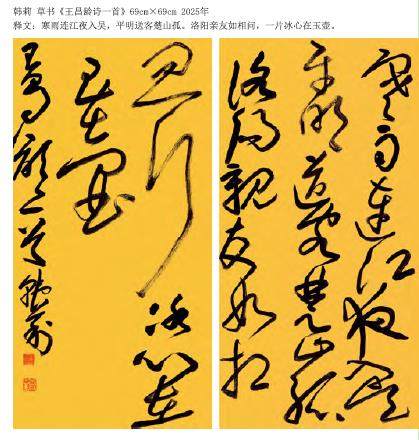 韩莉 草书《王昌龄诗一首》69cm×69cm 2025年
释文：寒雨连江夜入吴，平明送客楚山孤。洛阳亲友如相问，一片冰心在玉壶。
寒雨連江夜入吴
平明送客楚山孤
洛陽親友如相
问一片冰心在
玉壶
韩莉